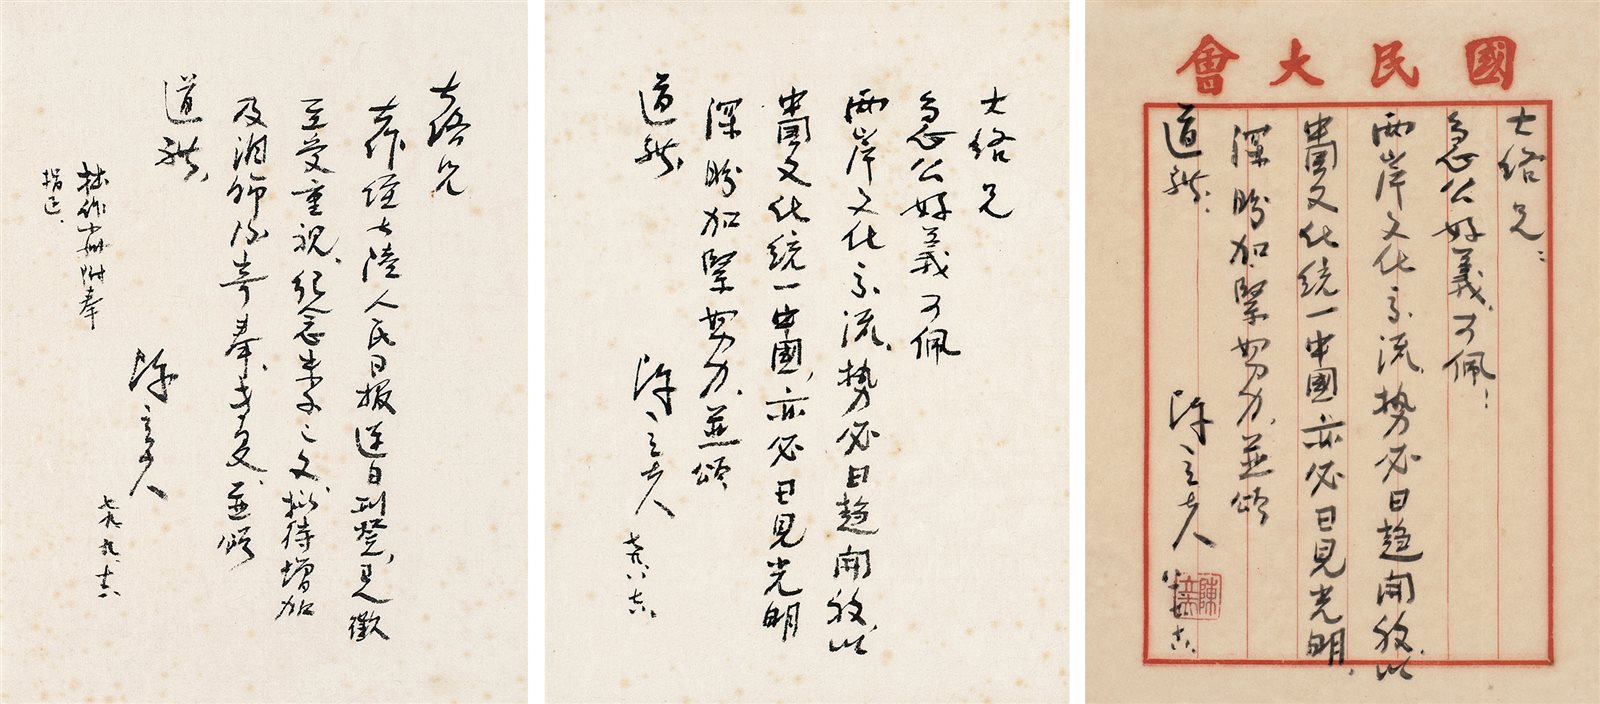 國民大會
兄：
急公好義，可佩！
兩岸文化交流，勢必日趨開放，以
中國文化統一中國，亦必日見光明，
深盼加緊努力，並頌
道祺。
陳立夫
陳立夫
兄
急公好義可佩
兩岸文化交流，勢必日趨開放，以
中國文化統一中國，亦必日見光明
深盼加緊努力，並頌
道祺
陳立夫
兄
大作經大陸人民日報逐日刊登，足徵
至受重視，紀念朱子之文，擬待增加
及潤飾後寄奉，耑復，並頌
道祺，
陳立夫
拙作附奉
指正